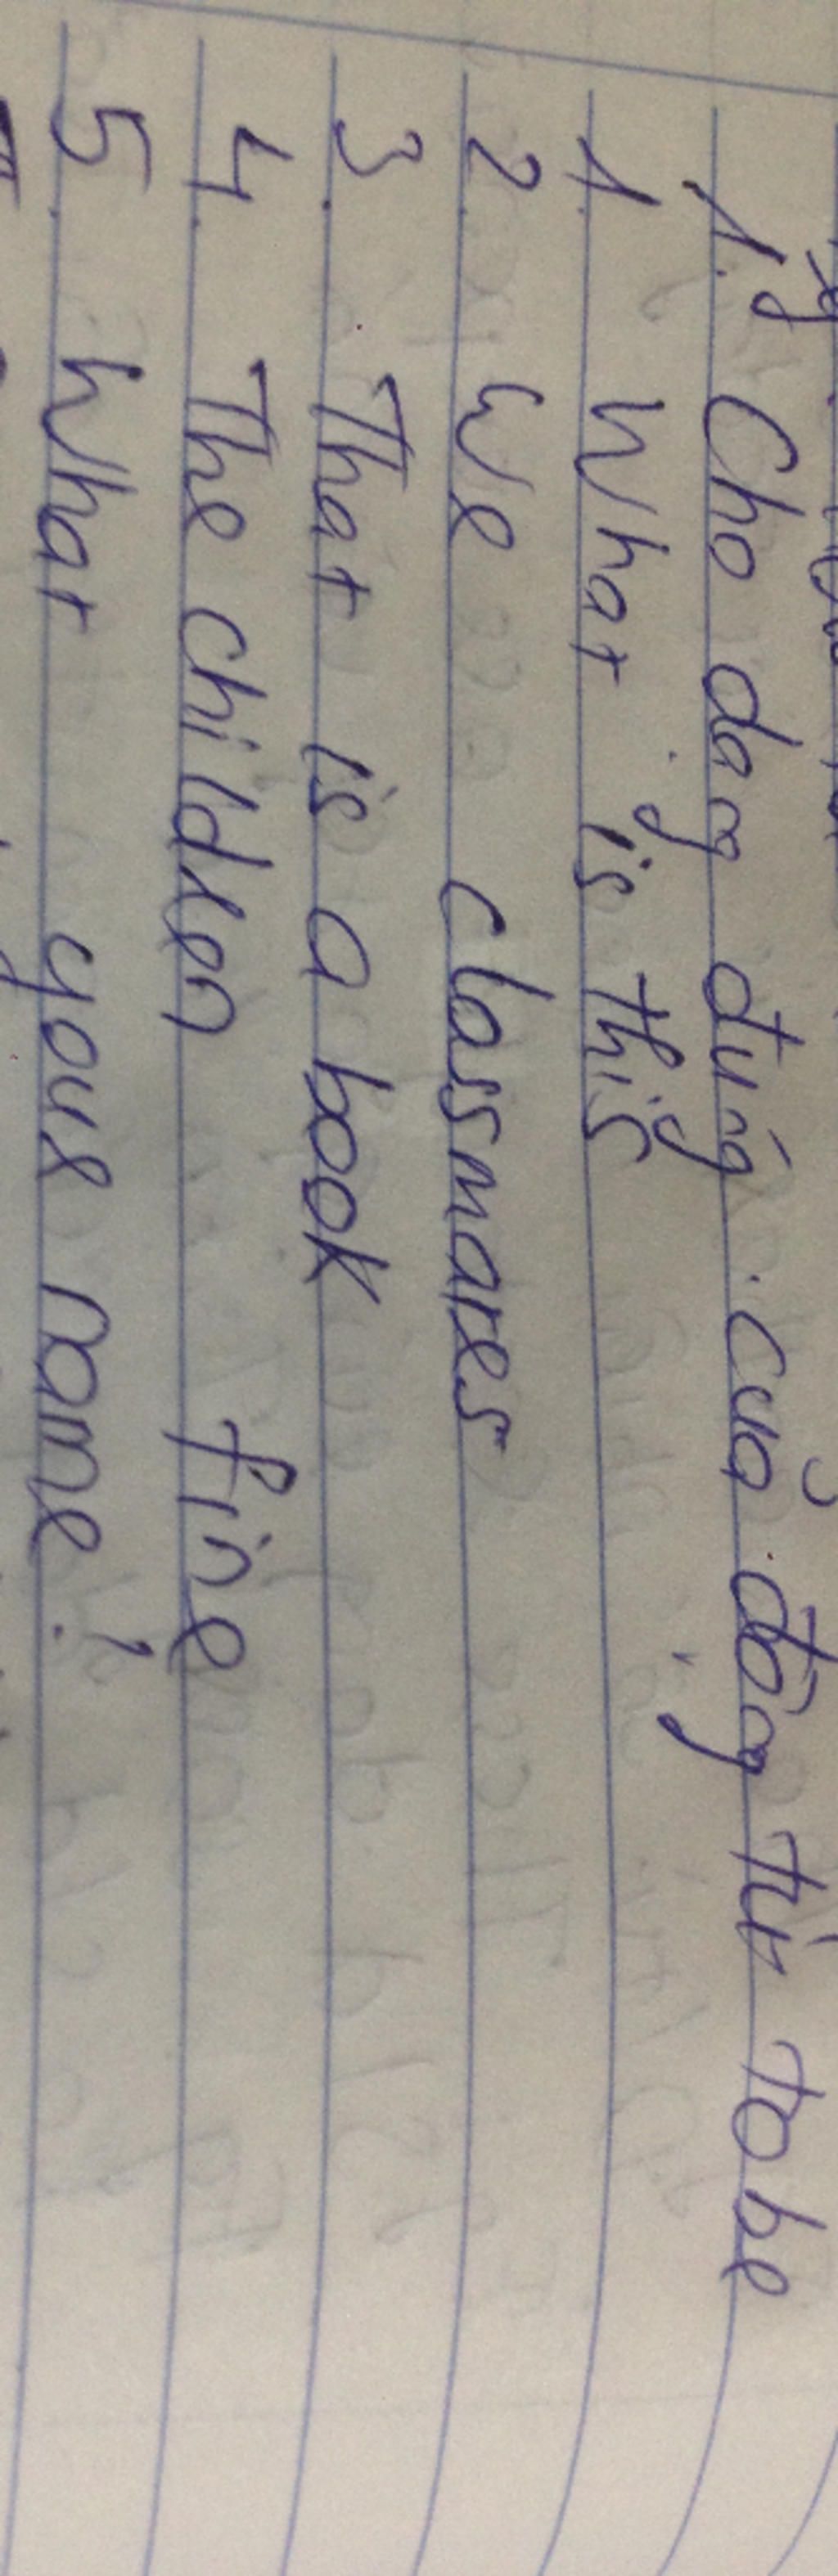 1. Cho dạng đúng của động từ tobe
1. What is this
2. We classmates
3. That is a book
4. The children fine
5. What your name?